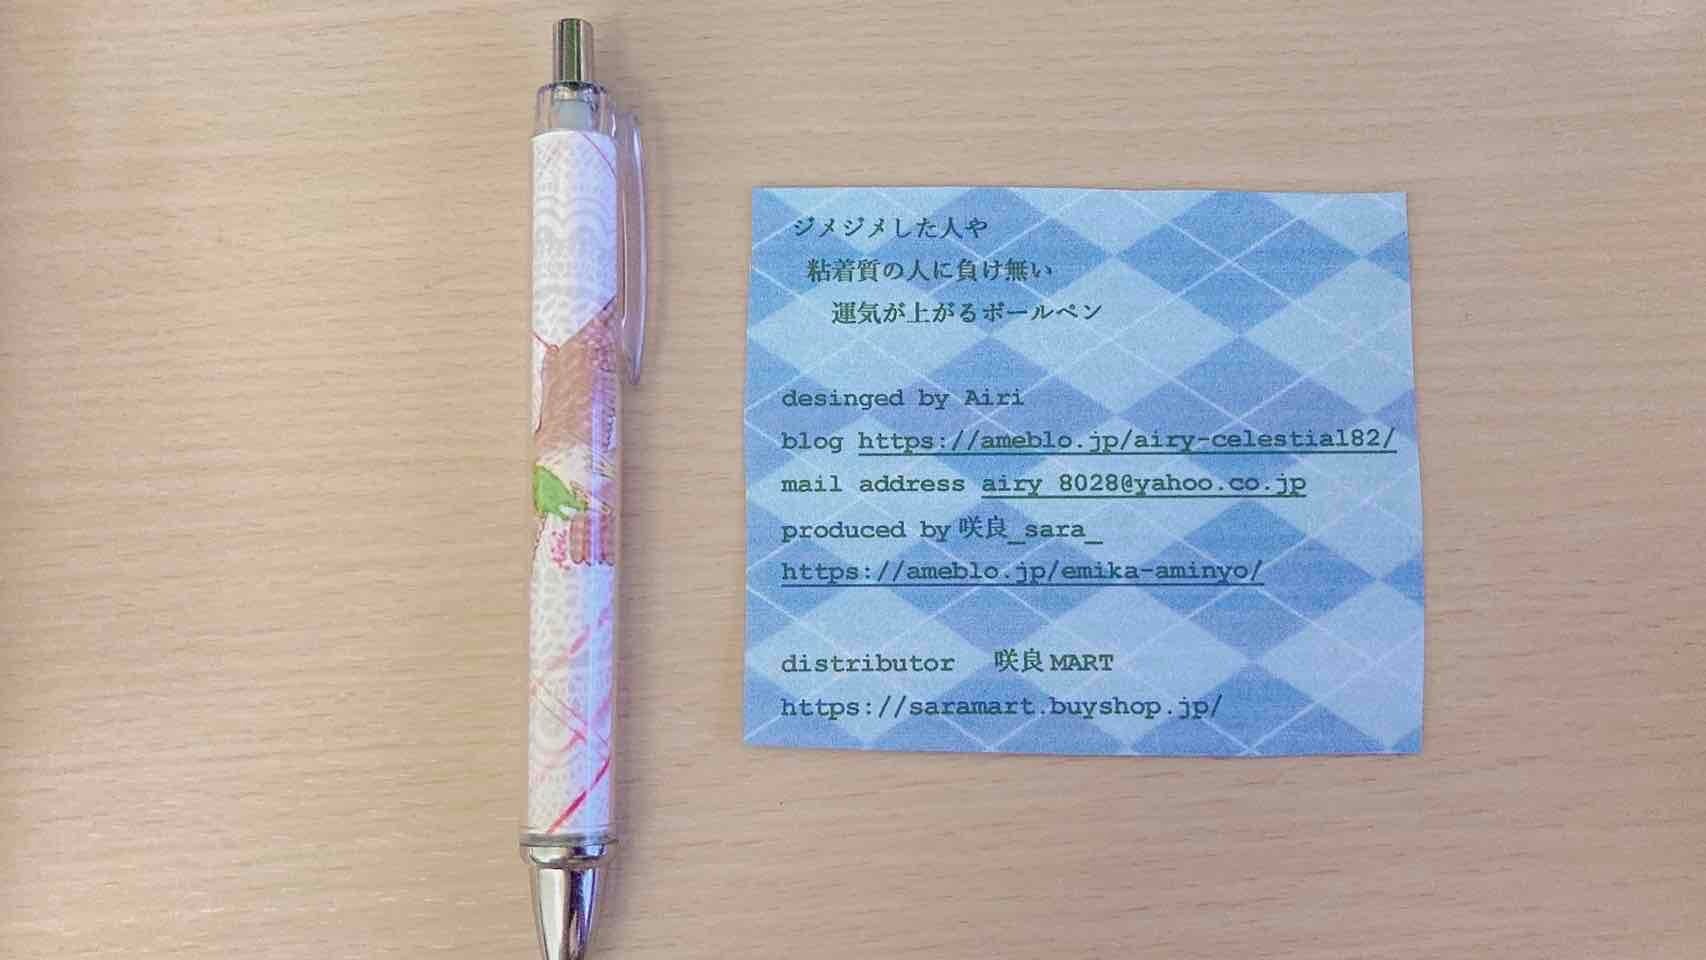 ジメジメした人や
粘着質の人に負け無い
運気が上がるボールペン
desinged by Airi
blog https://ameblo.jp/airy-celestial82/
mail address airy_8028@yahoo.co.jp
produced by 咲良_sara_
https://ameblo.jp/emika-aminyo/
distributor 咲良MART
https://saramart.buyshop.jp/